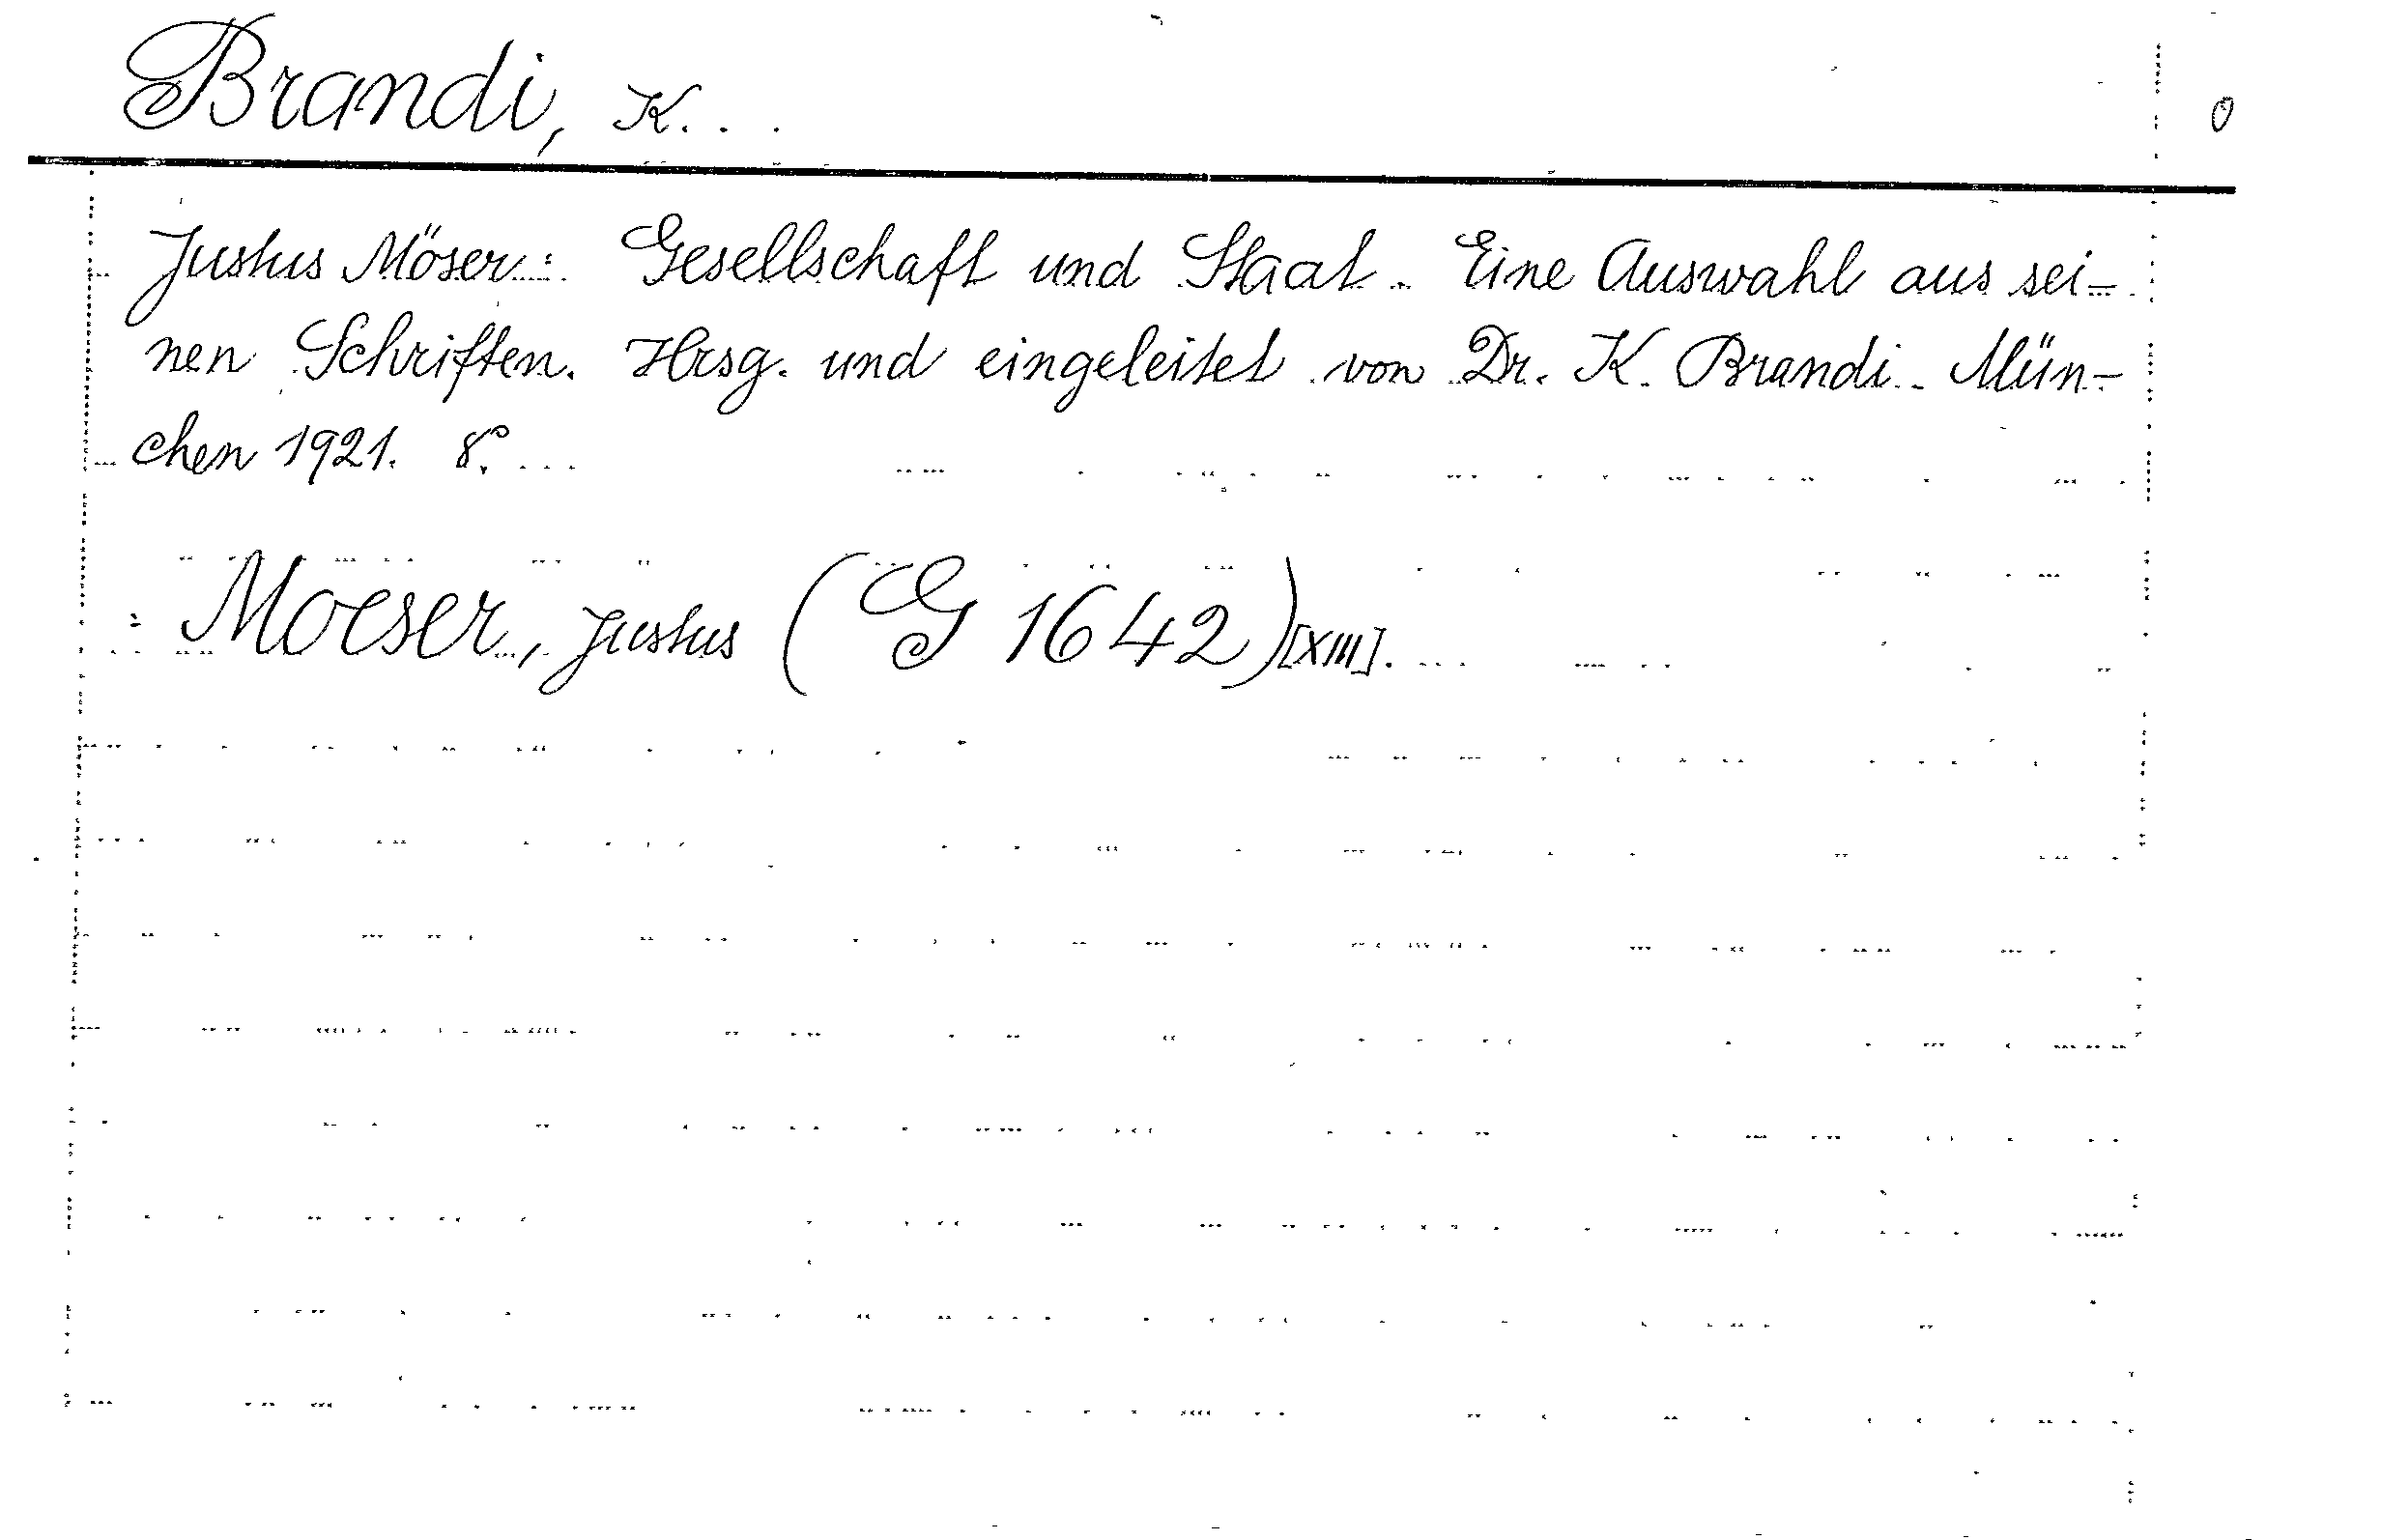 Brandi, K...
0
Justus Möser: Gesellschaft und Staat. Eine Auswahl aus sei-
nen Schriften. Hrsg. und eingeleitet von Dr. K. Brandi. Mün-
chen 1921. 8°.
: Moeser, Justus (G 1642) [XIII].